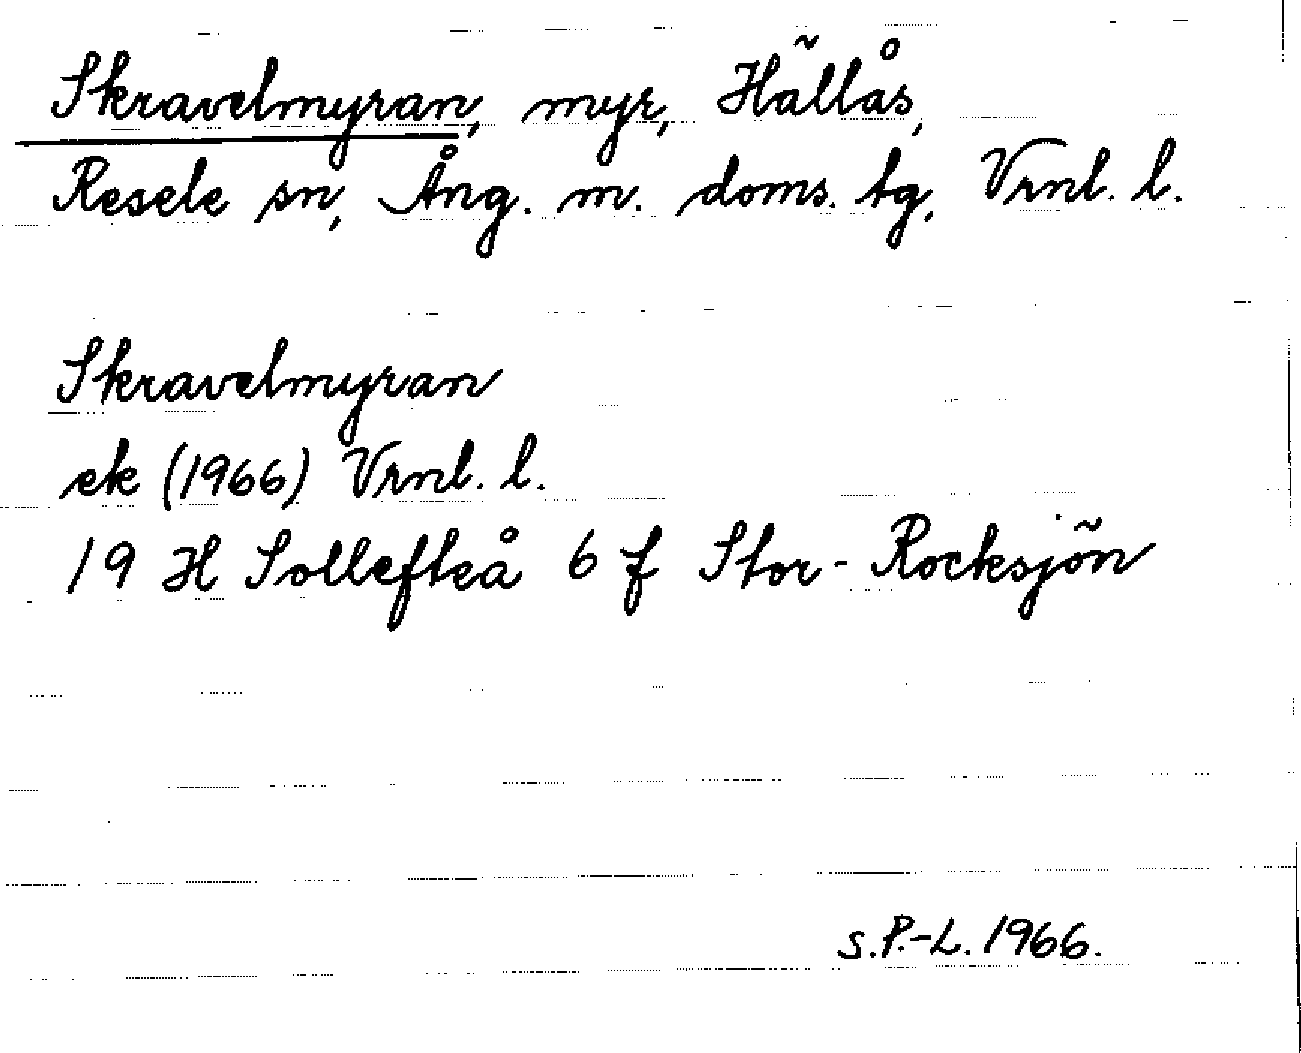 Skravelmyran, myr, Hällås,
Resele sn, Ång. m. doms. tg, Vrnl. l.
Skravelmyran
ek (1966) Vrnl. l.
19 H Sollefteå 6 f Stor-Rocksjön
s.P.-L. 1966.